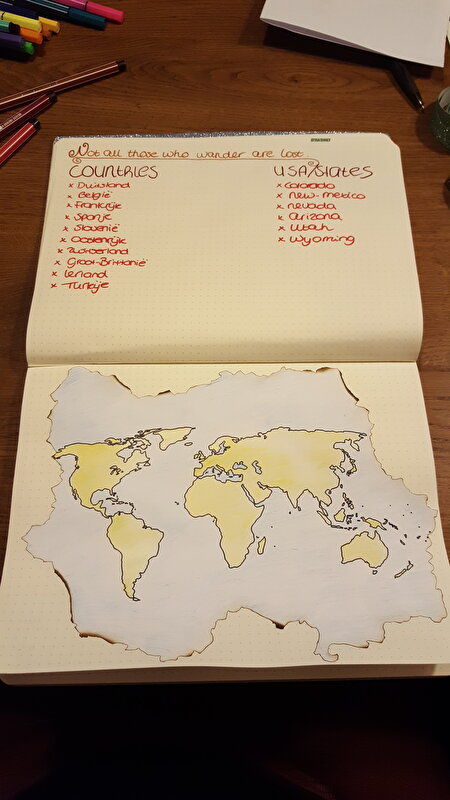 Not all those who wander are lost
COUNTRIES
x Duitsland
x België
x Frankrijk
x Spanje
x Slovenië
x Oostenrijk
x Zwitserland
x Groot-Brittanië
x Ierland
x Turkije
USA/STATES
x Colorado
x New-mexico
x nevada
x arizona
x Utah
x Wyoming